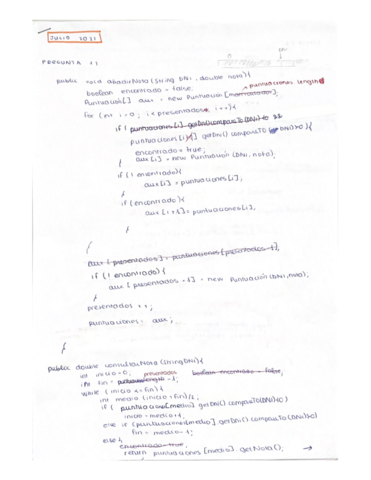 JULIO 2021
PREGUNTA 11
public void añadirNota (String DNI, double nota) {
boolean encontrado = false;
puntuaciones.length
Puntuacion[] aux = new Puntuacion [
for (int i=0; i < presentados; i++) {
if ( puntuaciones [i]. getDni() compareTo (DNI)
puntuaciones [i] getDni() compareTo (DNI)>0) {
encontrado = true;
aux [i] = new Puntuacion (DNI, nota);
if (! encontrado) {
aux [i] = puntuaciones [i];
if (encontrado) {
aux [i+1] = puntuaciones [i];
}
aux [presentados] = puntuaciones [presentados-1];
if (! encontrado) {
aux [presentados +1] = new Puntuacion (DNI, nota);
}
presentados ++;
puntuaciones = aux;
}
public double consultarNota (String DNI) {
int inicio=0; presentados boolean encontrado = false;
int fin = -1;
while (inicio <= fin) {
int medio (inicio + fin)/2;
if ( puntuaciones[medio]. getDni() compareTo(DNI)<0)
inicio = medio+1;
else if (puntuaciones[medio]. getDni() compareTo(DNI)>0)
fin = medio-1;
else {
encontrado = true;
return puntuaciones [medio]. getNota(); →